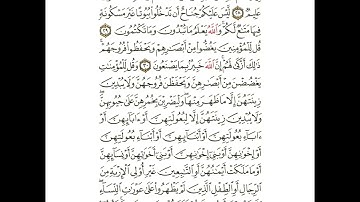 عَلِيمٌ ٢٨ لَّيْسَ عَلَيْكُمْ جُنَاحٌ أَن تَدْخُلُوا۟ بُيُوتًا غَيْرَ مَسْكُونَةٍ
فِيهَا مَتَٰعٌ لَّكُمْ وَٱللَّهُ يَعْلَمُ مَا تُبْدُونَ وَمَا تَكْتُمُونَ ٢٩
قُل لِّلْمُؤْمِنِينَ يَغُضُّوا۟ مِنْ أَبْصَٰرِهِمْ وَيَحْفَظُوا۟ فُرُوجَهُمْ
ذَٰلِكَ أَزْكَىٰ لَهُمْ إِنَّ ٱللَّهَ خَبِيرٌۢ بِمَا يَصْنَعُونَ ٣٠ وَقُل لِّلْمُؤْمِنَٰتِ
يَغْضُضْنَ مِنْ أَبْصَٰرِهِنَّ وَيَحْفَظْنَ فُرُوجَهُنَّ وَلَا يُبْدِينَ
زِينَتَهُنَّ إِلَّا مَا ظَهَرَ مِنْهَا وَلْيَضْرِبْنَ بِخُمُرِهِنَّ عَلَىٰ جُيُوبِهِنَّ
وَلَا يُبْدِينَ زِينَتَهُنَّ إِلَّا لِبُعُولَتِهِنَّ أَوْ ءَابَآئِهِنَّ أَوْ
ءَابَآءِ بُعُولَتِهِنَّ أَوْ أَبْنَآئِهِنَّ أَوْ أَبْنَآءِ بُعُولَتِهِنَّ
أَوْ إِخْوَٰنِهِنَّ أَوْ بَنِىٓ إِخْوَٰنِهِنَّ أَوْ بَنِىٓ أَخَوَٰتِهِنَّ أَوْ نِسَآئِهِنَّ
أَوْ مَا مَلَكَتْ أَيْمَٰنُهُنَّ أَوِ ٱلتَّٰبِعِينَ غَيْرِ أُو۟لِى ٱلْإِرْبَةِ مِنَ
ٱلرِّجَالِ أَوِ ٱلطِّفْلِ ٱلَّذِينَ لَمْ يَظْهَرُوا۟ عَلَىٰ عَوْرَٰتِ ٱلنِّسَآءِ